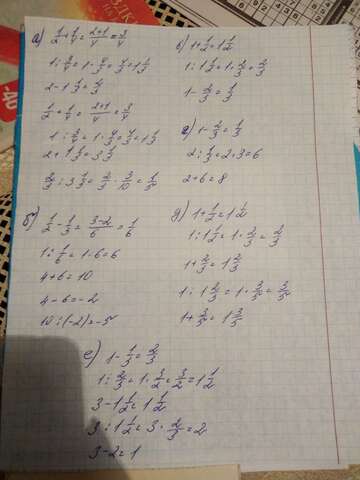 а) 1/2 + 1/4 = (2+1)/4 = 3/4
1 : 3/4 = 1 · 4/3 = 4/3 = 1 1/3
2 - 1 1/3 = 2/3
1/2 + 1/4 = (2+1)/4 = 3/4
1 : 3/4 = 1 · 4/3 = 4/3 = 1 1/3
2 + 1 1/3 = 3 1/3
2/3 : 3 1/3 = 2/3 · 3/10 = 1/5
б) 1/2 - 1/3 = (3-2)/6 = 1/6
1 : 1/6 = 1 · 6 = 6
4 + 6 = 10
4 - 6 = -2
10 : (-2) = -5
в) 1 + 1/2 = 1 1/2
1 : 1 1/2 = 1 · 2/3 = 2/3
1 - 2/3 = 1/3
г) 1 - 2/3 = 1/3
2 : 1/3 = 2 · 3 = 6
2 + 6 = 8
д) 1 + 1/2 = 1 1/2
1 : 1 1/2 = 1 · 2/3 = 2/3
1 + 2/3 = 1 2/3
1 : 1 2/3 = 1 · 3/5 = 3/5
1 + 3/5 = 1 3/5
е) 1 - 1/3 = 2/3
1 : 2/3 = 1 · 3/2 = 3/2 = 1 1/2
3 - 1 1/2 = 1 1/2
3 : 1 1/2 = 3 · 2/3 = 2
3 - 2 = 1
-40